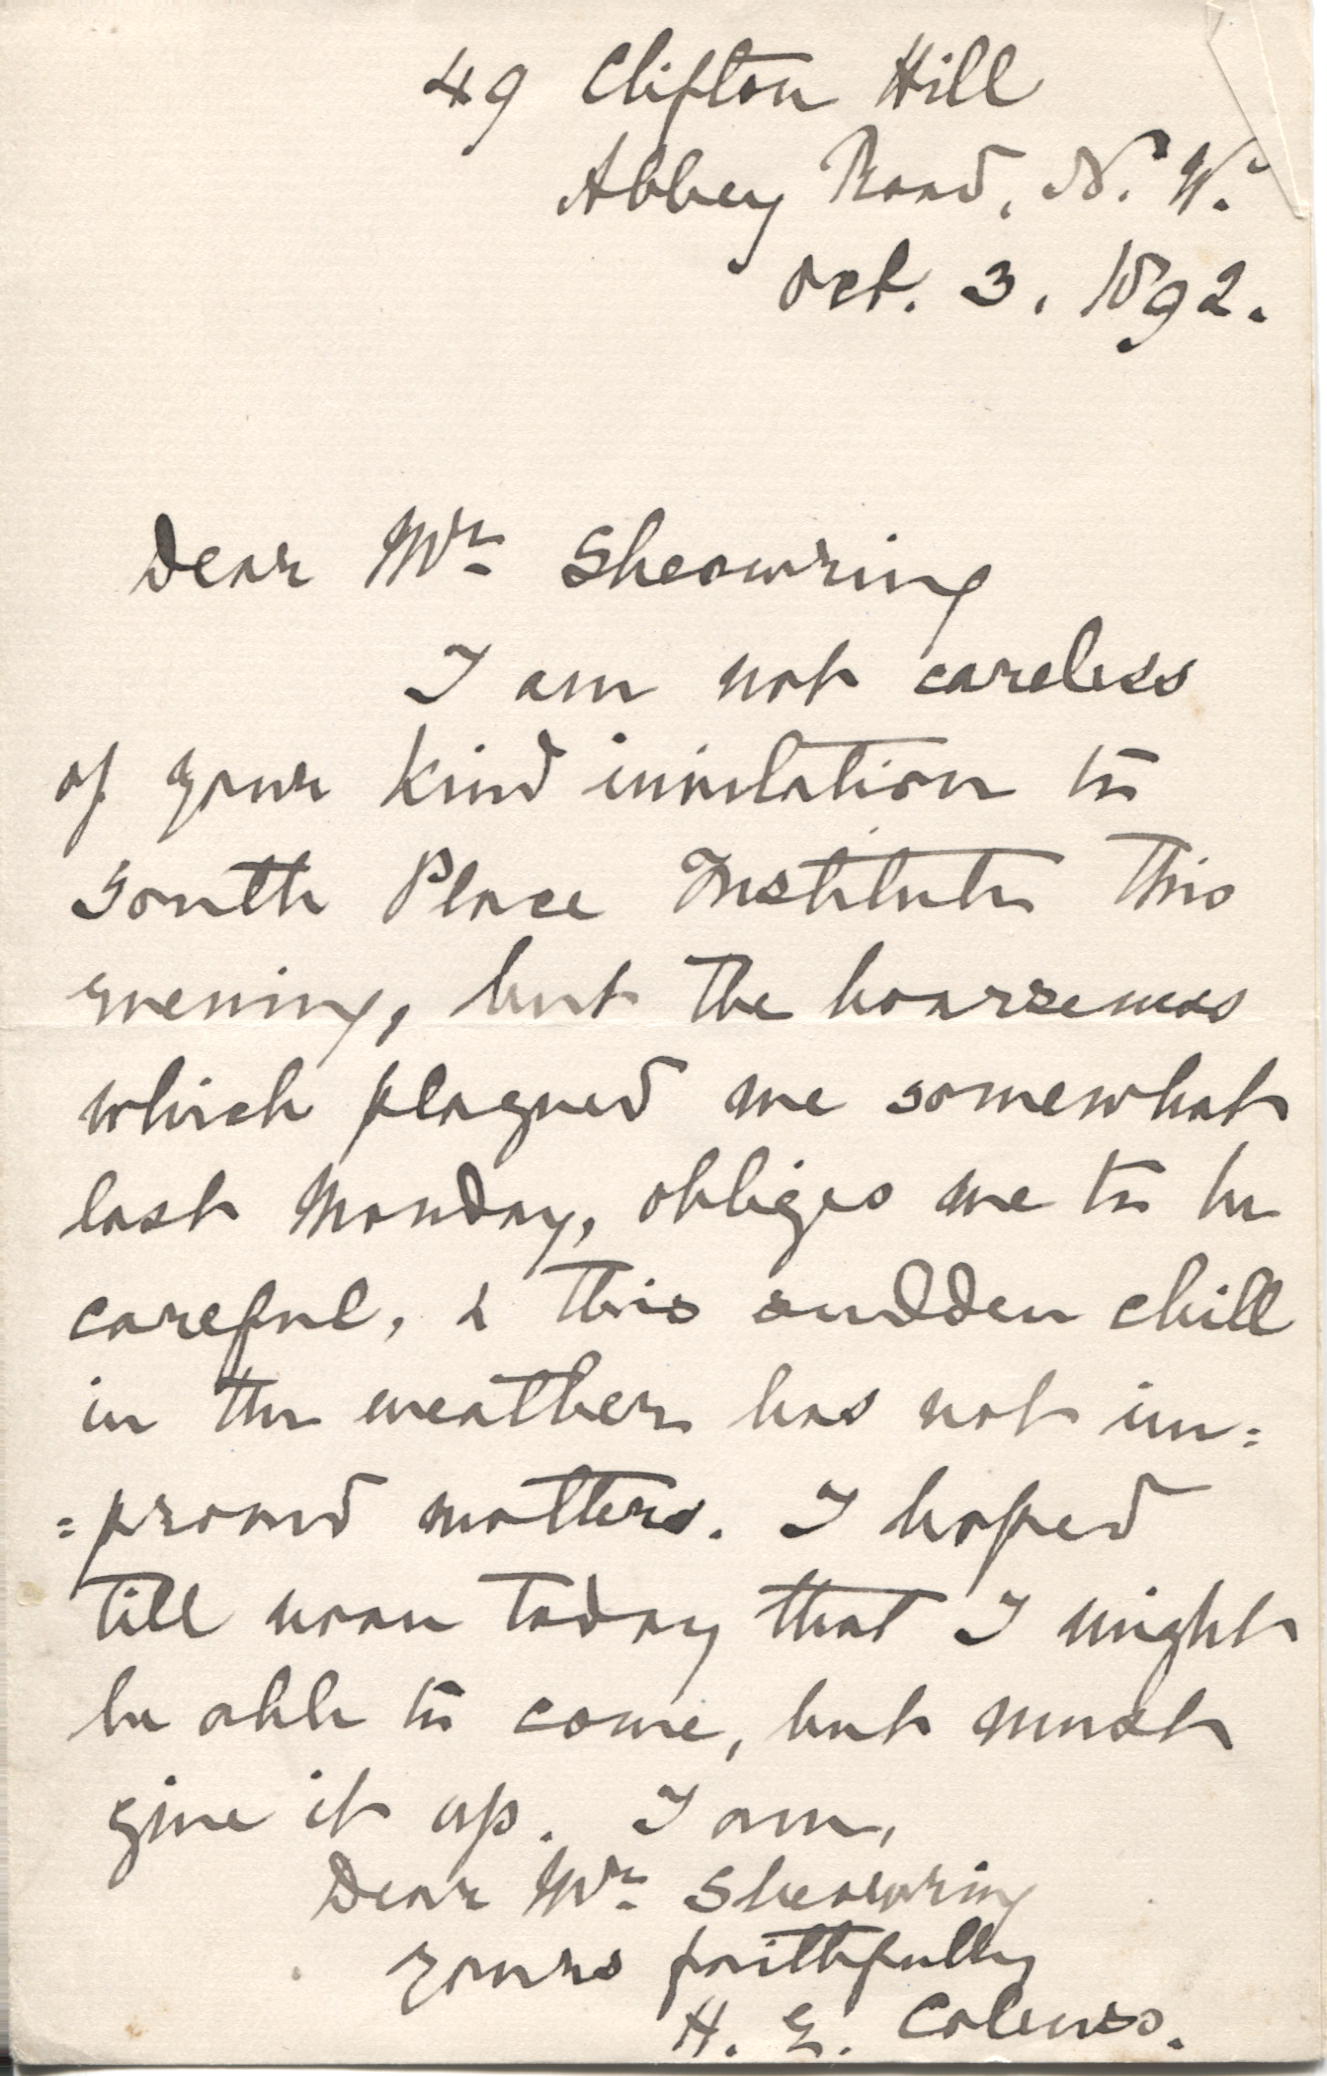 49 Clifton Hill
Abbey Road, N. W.
Oct. 3. 1892.
Dear Mr. Sheowring
I am not careless
of your kind invitation to
South Place Institute this
evening, but the hoarseness
which plagued me somewhat
last Monday, obliges me to be
careful, & this sudden chill
in the weather has not im=
=proved matters. I hoped
till noon today that I might
be able to come, but must
give it up. I am,
Dear Mr. Sheowring
yours faithfully
H. E. Colenso.